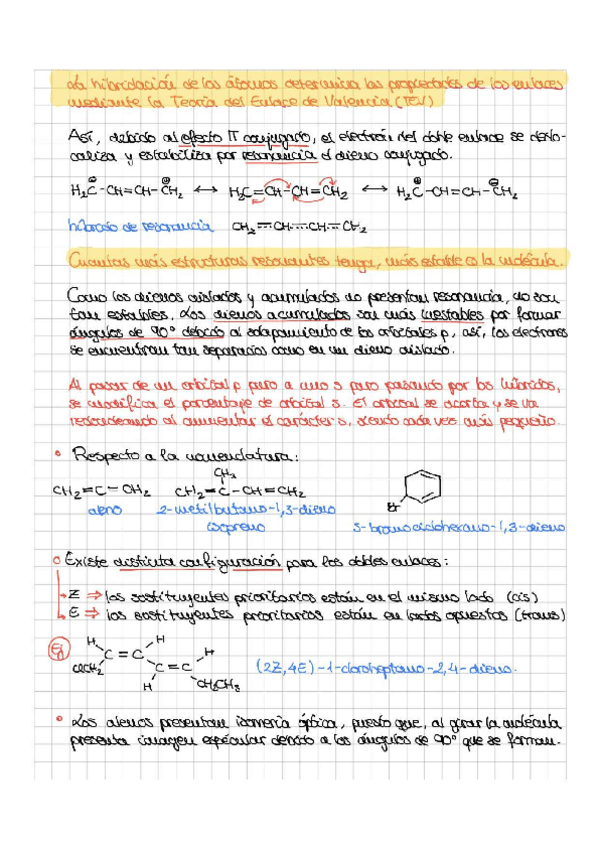 La hibridación de los átomos determina las propiedades de los enlaces
mediante la Teoría del Enlace de Valencia (TEV)
Así, debido al efecto π conjugado, el electrón del doble enlace se deslo-
caliza y estabiliza por resonancia el dieno conjugado.
H₂C⊕-CH=CH-CH₂⊖ ↔ H₂C=CH-CH=CH₂ ↔ H₂C⊕-CH=CH-CH₂⊖
híbrido de resonancia CH₂=CH-CH=CH₂
Cuantas más estructuras resonantes tenga, más estable es la molécula.
Como los dienos aislados y acumulados no presentan resonancia, no son
tan estables. Los dienos acumulados son más inestables por formar
ángulos de 90° debido al solapamiento de los orbitales p, así, los electrones
se encuentran tan separados como en un dieno aislado.
Al pasar de un orbital p puro a uno s puro pasando por los híbridos,
se modifica el porcentaje de orbital s. El orbital se acorta y se va
redondeando al aumentar el carácter s, siendo cada vez más pequeño.
Respecto a la nomenclatura:
CH₃
CH₂=C-CH₂ CH₂=C-CH=CH₂ Br
aleno 2-metilbutano-1,3-dieno 5-bromociclohexano-1,3-dieno
isopreno
Existe distinta configuración para los dobles enlaces:
Z ⇒ los sustituyentes prioritarios están en el mismo lado (cis)
E ⇒ los sustituyentes prioritarios están en lados opuestos (trans)
Ej H H
C=C H
ClCH₂ C=C
H CH₂CH₃
(2Z,4E)-1-cloroheptano-2,4-dieno.
Los alenos presentan isomería óptica, puesto que, al girar la molécula
presenta imagen especular debido a los ángulos de 90° que se forman.